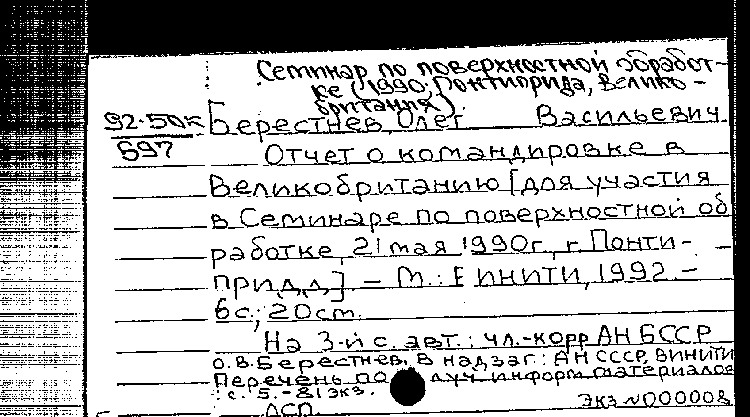 Семинар по поверхностной обработ-
ке (1990; Понтиприда, Велико-
британия)
92-50к Берестнев, Олег Васильевич
597 Отчет о командировке в
Великобританию [для участия
в Семинаре по поверхностной об
работке, 21 мая 1990г., г. Понти-
прида,]. - М.: ВИНИТИ, 1992. -
6с.; 20см.
На 3-й с. авт.: чл.-корр АН БССР
О.В.Берестнев. В надзаг.: АН СССР, ВИНИТИ
Перечень луч информ материалов
: с. 5. - 81 экз.
ДСП Экз N000008